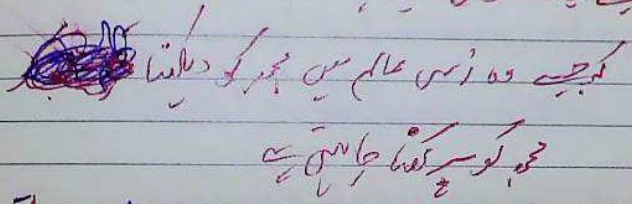 کہ جیسے وہ اسی عالم میں مجھ کو دیکھنا
مجھ کو سرکھنا چاہتی ہے